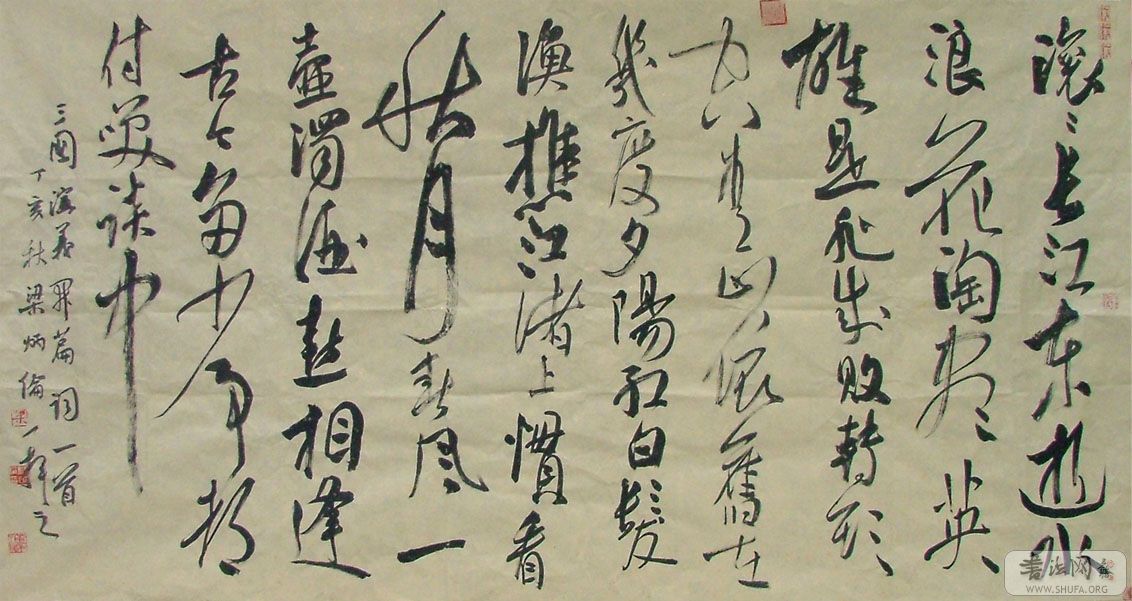 滚〻長江东逝水
浪花淘尽英
雄是非成败轉头
为空青山依舊在
幾度夕陽红白髮
渔樵江渚上慣看
秋月春风一
壺濁酒喜相逢
古今多少事都
付笑谈中
三國演义開篇词一首
丁亥秋梁炳倫一挥之
书法网
WWW.SHUFA.ORG